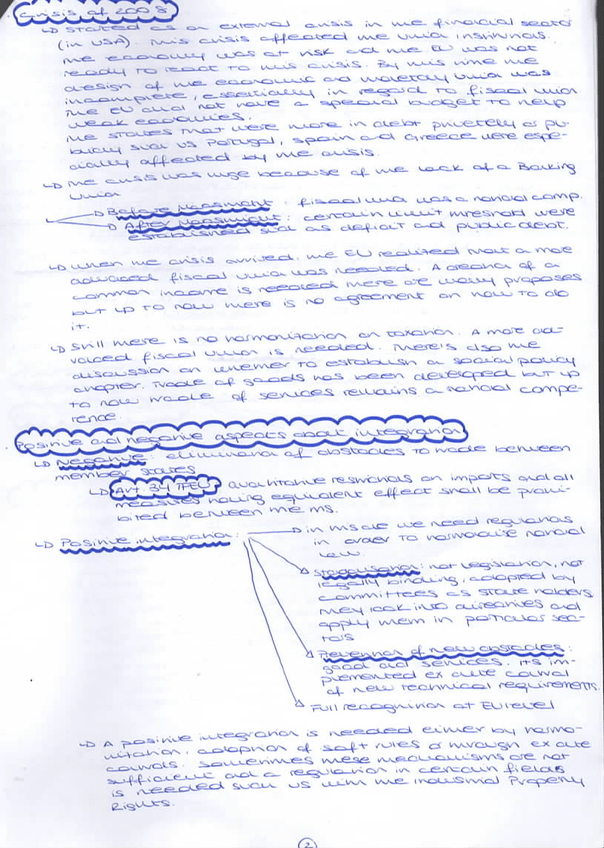 Crisis of 2008
↳ Started as an external crisis in the financial sector
(in USA). This crisis affected the Union institutions.
The economy was at risk and the EU was not
ready to react to this crisis. By this time the
design of the economic and monetary Union was
incomplete, essentially in regard to fiscal union
The EU did not have a special budget to help
weak economies.
The states that were more in debt privately or pu-
blicly such as Portugal, Spain and Greece were espe-
cially affected by the crisis.
↳ The crisis was huge because of the lack of a Banking
Union
→ Before Maastricht: fiscal union was a national comp.
→ After Maastricht: certain limit threshold were
established such as deficit and public debt.
↳ When the crisis arrived, the EU realized that a more
advanced fiscal Union was needed. A creation of a
common income is needed there are many proposes
but up to now there is no agreement on how to do
it.
↳ Still there is no harmonization on taxation. A more ad-
vanced fiscal Union is needed. There's also the
discussion on whether to establish a social policy
chapter. Trade of goods has been developed but up
to now trade of services remains a national compe-
tence.
Positive and negative aspects about integration
↳ Negative: elimination of obstacles to trade between
member states
↳ Art 34 TFEU: quantitative restrictions on imports and all
measures having equivalent effect shall be prohi-
bited between the ms.
↳ Positive integration:
→ in this case we need regulations
in order to harmonise national
law.
→ Standardisation: not legislation, not
legally binding, adopted by
committees as stake holders
they look into directives and
apply them in particular sec-
tors
→ Prevention of new obstacles:
good and services. Its im-
plemented ex ante control
of new technical requirements.
→ Full recognition at EU level
↳ A positive integration is needed either by harmo-
nization, adoption of soft rules or through ex ante
controls. Sometimes these mechanisms are not
sufficient and a regulation in certain fields
is needed such as with the Industrial Property
Rights.
2